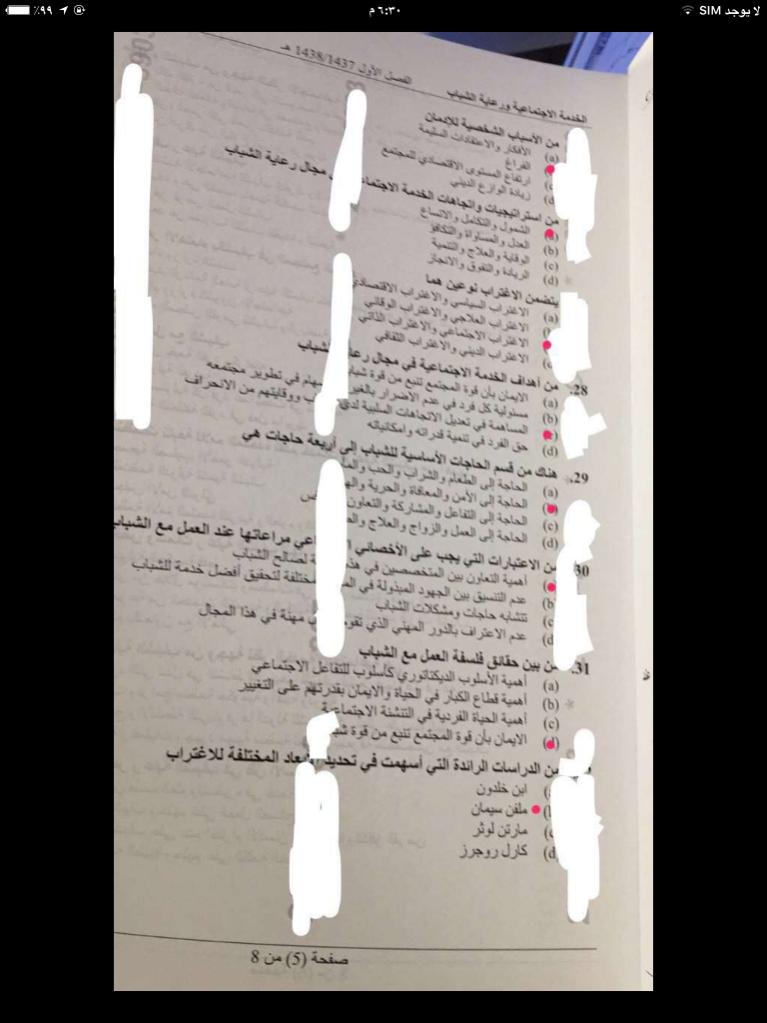 لا يوجد SIM
٦:٣٠ م
٪٩٩
الخدمة الاجتماعية ورعاية الشباب
الفصل الأول 1438/1437 هـ
من الأسباب الشخصية للإدمان
(a) الأفكار والاعتقادات السليمة
الفراغ
ارتفاع المستوى الاقتصادي للمجتمع
(d زيادة الوازع الديني
من استراتيجيات واتجاهات الخدمة الاجتماعية مجال رعاية الشباب
الشمول والتكامل والاتساع
(b) العدل والمساواة والتكافؤ
(c) الوقاية والعلاج والتنمية
(d) الريادة والتفوق والانجاز
يتضمن الاغتراب نوعين هما
(a) الاغتراب السياسي والاغتراب الاقتصادي
الاغتراب العلاجي والاغتراب الوقائي
الاغتراب الاجتماعي والاغتراب الذاتي
الاغتراب الديني والاغتراب الثقافي
28. من أهداف الخدمة الاجتماعية في مجال رعاية الشباب
(a) الايمان بأن قوة المجتمع تنبع من قوة شباب
(b) مسئولية كل فرد في عدم الاضرار بالغير سهام في تطوير مجتمعه
المساهمة في تعديل الاتجاهات السلبية لدى ووقايتهم من الانحراف
(d) حق الفرد في تنمية قدراته وامكانياته
29. هناك من قسم الحاجات الأساسية للشباب إلى أربعة حاجات هي
(a) الحاجة إلى الطعام والشراب والحب
الحاجة إلى الأمن والمعافاة والحرية
(c) الحاجة إلى التفاعل والمشاركة والتعاون
(d) الحاجة إلى العمل والزواج والعلاج
30 من الاعتبارات التي يجب على الأخصائي مراعاتها عند العمل مع الشباب
أهمية التعاون بين المتخصصين في هذا لصالح الشباب
(b عدم التنسيق بين الجهود المبذولة في مختلفة لتحقيق أفضل خدمة للشباب
(c تتشابه حاجات ومشكلات الشباب
(d عدم الاعتراف بالدور المهني الذي تقوم مهنة في هذا المجال
31. من بين حقائق فلسفة العمل مع الشباب
(a) أهمية الأسلوب الديكتاتوري كأسلوب للتفاعل الاجتماعي
(b) أهمية قطاع الكبار في الحياة والايمان بقدرتهم على التغيير
(c) أهمية الحياة الفردية في التنشئة الاجتماعية
(d) الايمان بأن قوة المجتمع تنبع من قوة
من الدراسات الرائدة التي أسهمت في تحديد الأبعاد المختلفة للاغتراب
ابن خلدون
ملفن سيمان
مارتن لوثر
(d كارل روجرز
صفحة (5) من 8